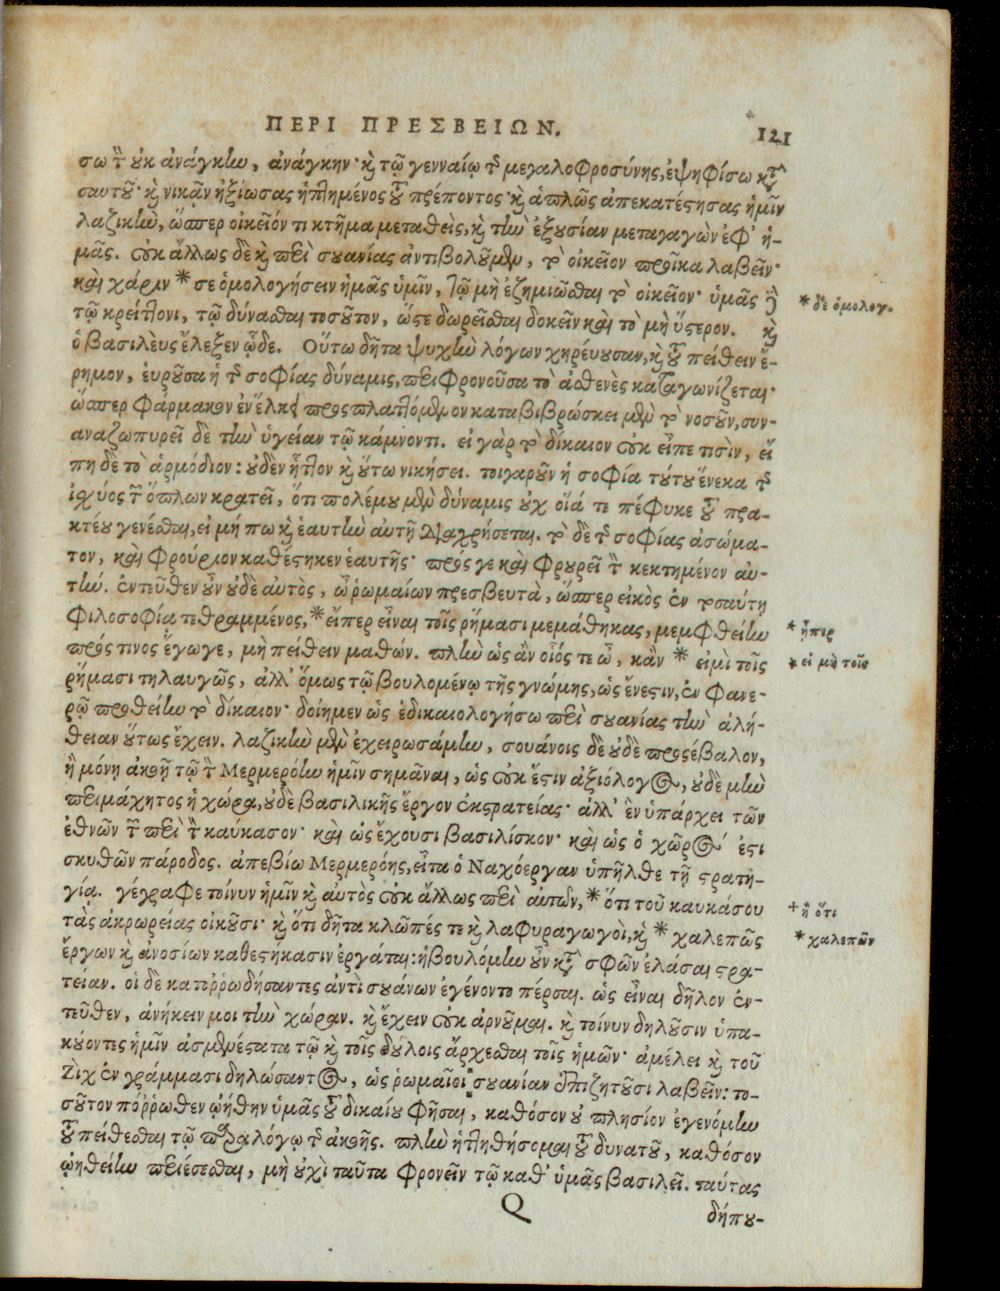 ΠΕΡΙ ΠΡΕΣΒΕΙΩΝ. 121
σω τὴν οὐκ ἀνάγκην, ἀνάγκην· καὶ τῷ γενναίῳ τῆς μεγαλοφροσύνης, ἐψηφίσω κατὰ
σαυτοῦ· καὶ νικᾷν ἠξίωσας ἡττημένος τοῦ πρέποντος· καὶ ἁπλῶς ἀπεκατέστησας ἡμῖν
λαζικὴν, ὥσπερ οἰκεῖόν τι κτῆμα μεταθεὶς, καὶ τὴν ἐξουσίαν μεταγαγὼν ἐφ' ἡ-
μᾶς. οὐκ ἄλλως δὲ καὶ περὶ σουανίας ἀντιβολοῦμεν, τὸ οἰκεῖον προῖκα λαβεῖν·
καὶ χάριν * σε ὁμολογήσειν ἡμᾶς ὑμῖν, τῷ μὴ ἐζημιῶσθαι τὸ οἰκεῖον· ὑμᾶς δὲ
* δὲ ὁμολογ.
τῷ κρείττονι, τῷ δύνασθαι τοσοῦτον, ὥστε δωρεῖσθαι δοκεῖν καὶ τὸ μὴ ὕστερον. καὶ
ὁ βασιλεὺς ἔλεξεν ᾧδε. Οὕτω δῆτα ψυχὴν λόγων χηρεύουσαν, καὶ τοῦ πείθειν ἔ-
ρημον, εὑροῦσα ἡ τῆς σοφίας δύναμις, περιφρονοῦσα τὸ ἀσθενὲς καταγωνίζεται·
ὥσπερ φάρμακον ἐν ἕλκει προσπλαττόμενον καταβιβρώσκει μὲν τὸ νοσοῦν, συν-
αναζωπυρεῖ δὲ τὴν ὑγείαν τῷ κάμνοντι. εἰ γὰρ τὸ δίκαιον οὐκ εἶπε τισὶν, εἴ
πη δὲ τὸ ἁρμόδιον: οὐδὲν ἧττον καὶ οὕτω νικήσει. τοιγαροῦν ἡ σοφία τούτου ἕνεκα τῆς
ἰσχύος τῶν ὅπλων κρατεῖ, ὅτι πολέμου μὲν δύναμις οὐχ οἵά τε πέφυκε τοῦ πρα-
κτέου γενέσθαι, εἰ μή πω καὶ ἑαυτὴν αὐτῇ διαχρήσεται. τὸ δὲ τῆς σοφίας ἀσώμα-
τον, καὶ φρούριον καθέστηκεν ἑαυτῆς· πρός γε καὶ φρουρεῖ τὸν κεκτημένον αὐ-
τήν. ἐντεῦθεν οὖν οὐδὲ αὐτὸς, ὦ ῥωμαίων πρεσβευτὰ, ὥσπερ εἰκὸς ἐν τοσαύτῃ
φιλοσοφίᾳ τεθραμμένος, * εἴπερ εἶναι τοῖς ῥήμασι μεμάθηκας, μεμφθείην
* ἤπερ
πρός τινος ἔγωγε, μὴ πείθειν μαθών. πλὴν ὡς ἂν οἷός τε ὦ, κἂν * εἰμὶ τοῖς
* εἰ μὴ τοῖς
ῥήμασι τηλαυγῶς, ἀλλ' ὅμως τῷ βουλομένῳ τῆς γνώμης, ὡς ἔνεστιν, ἐν φανε-
ρῷ προθείην τὸ δίκαιον· δοίημεν ὡς ἐδικαιολογήσω περὶ σουανίας τὴν ἀλή-
θειαν οὕτως ἔχειν. λαζικὴν μὲν ἐχειρωσάμην, σουάνοις δὲ οὐδὲ προσέβαλον,
ἢ μόνῃ ἀκοῇ τῷ τὸν Μερμερόην ἡμῖν σημᾶναι, ὡς οὐκ ἔστιν ἀξιόλογος, οὐδὲ μὴν
περιμάχητος ἡ χώρα, οὐδὲ βασιλικῆς ἔργον ἐκστρατείας· ἀλλ' ἓν ὑπάρχει τῶν
ἐθνῶν τῶν περὶ τὸν καύκασον· καὶ ὡς ἔχουσι βασιλίσκον· καὶ ὡς ὁ χῶρός ἐστι
σκυθῶν πάροδος. ἀπεβίω Μερμερόης, εἶτα ὁ Ναχόεργαν ὑπῆλθε τῇ στρατη-
γίᾳ. γέγραφε τοίνυν ἡμῖν καὶ αὐτὸς οὐκ ἄλλως περὶ αὐτῶν, * ὅτι τοῦ καυκάσου
+ ἢ ὅτι
τὰς ἀκρωρείας οἰκοῦσι· καὶ ὅτι δῆτα κλῶπές τε καὶ λαφυραγωγοὶ, καὶ * χαλεπῶς
* χαλεπῶν
ἔργων καὶ ἀνοσίων καθεστήκασιν ἐργάται: ἠβουλόμην οὖν κατὰ σφῶν ἐλάσαι στρα-
τείαν. οἱ δὲ κατορρωδήσαντες ἀντὶ σουάνων ἐγένοντο πέρσαι. ὡς εἶναι δῆλον ἐν-
τεῦθεν, ἀνήκειν μοι τὴν χώραν. καὶ ἔχειν οὐκ ἀρνοῦμαι. καὶ τοίνυν δηλοῦσιν ὑπα-
κούοντες ἡμῖν ἀσμενέστατα τῷ καὶ τοῖς δούλοις ἄρχεσθαι τοῖς ἡμῶν· ἀμέλει καὶ τοῦ
Ζὶχ ἐν γράμμασι δηλώσαντος, ὡς ῥωμαῖοι σουανίαν ἐπιζητοῦσι λαβεῖν: το-
σοῦτον πόῤῥωθεν ᾠήθην ὑμᾶς τοῦ δικαίου φῆσαι, καθόσον οὐ πλησίον ἐγενόμην
τοῦ πείθεσθαι τῷ παραλόγῳ τῆς ἀκοῆς. πλὴν ἡττηθήσομαι τοῦ δυνατοῦ, καθόσον
ᾠηθείην περιέσεσθαι, μὴ οὐχὶ ταῦτα φρονεῖν τῷ καθ' ὑμᾶς βασιλεῖ. ταύτας
Q δήπου-